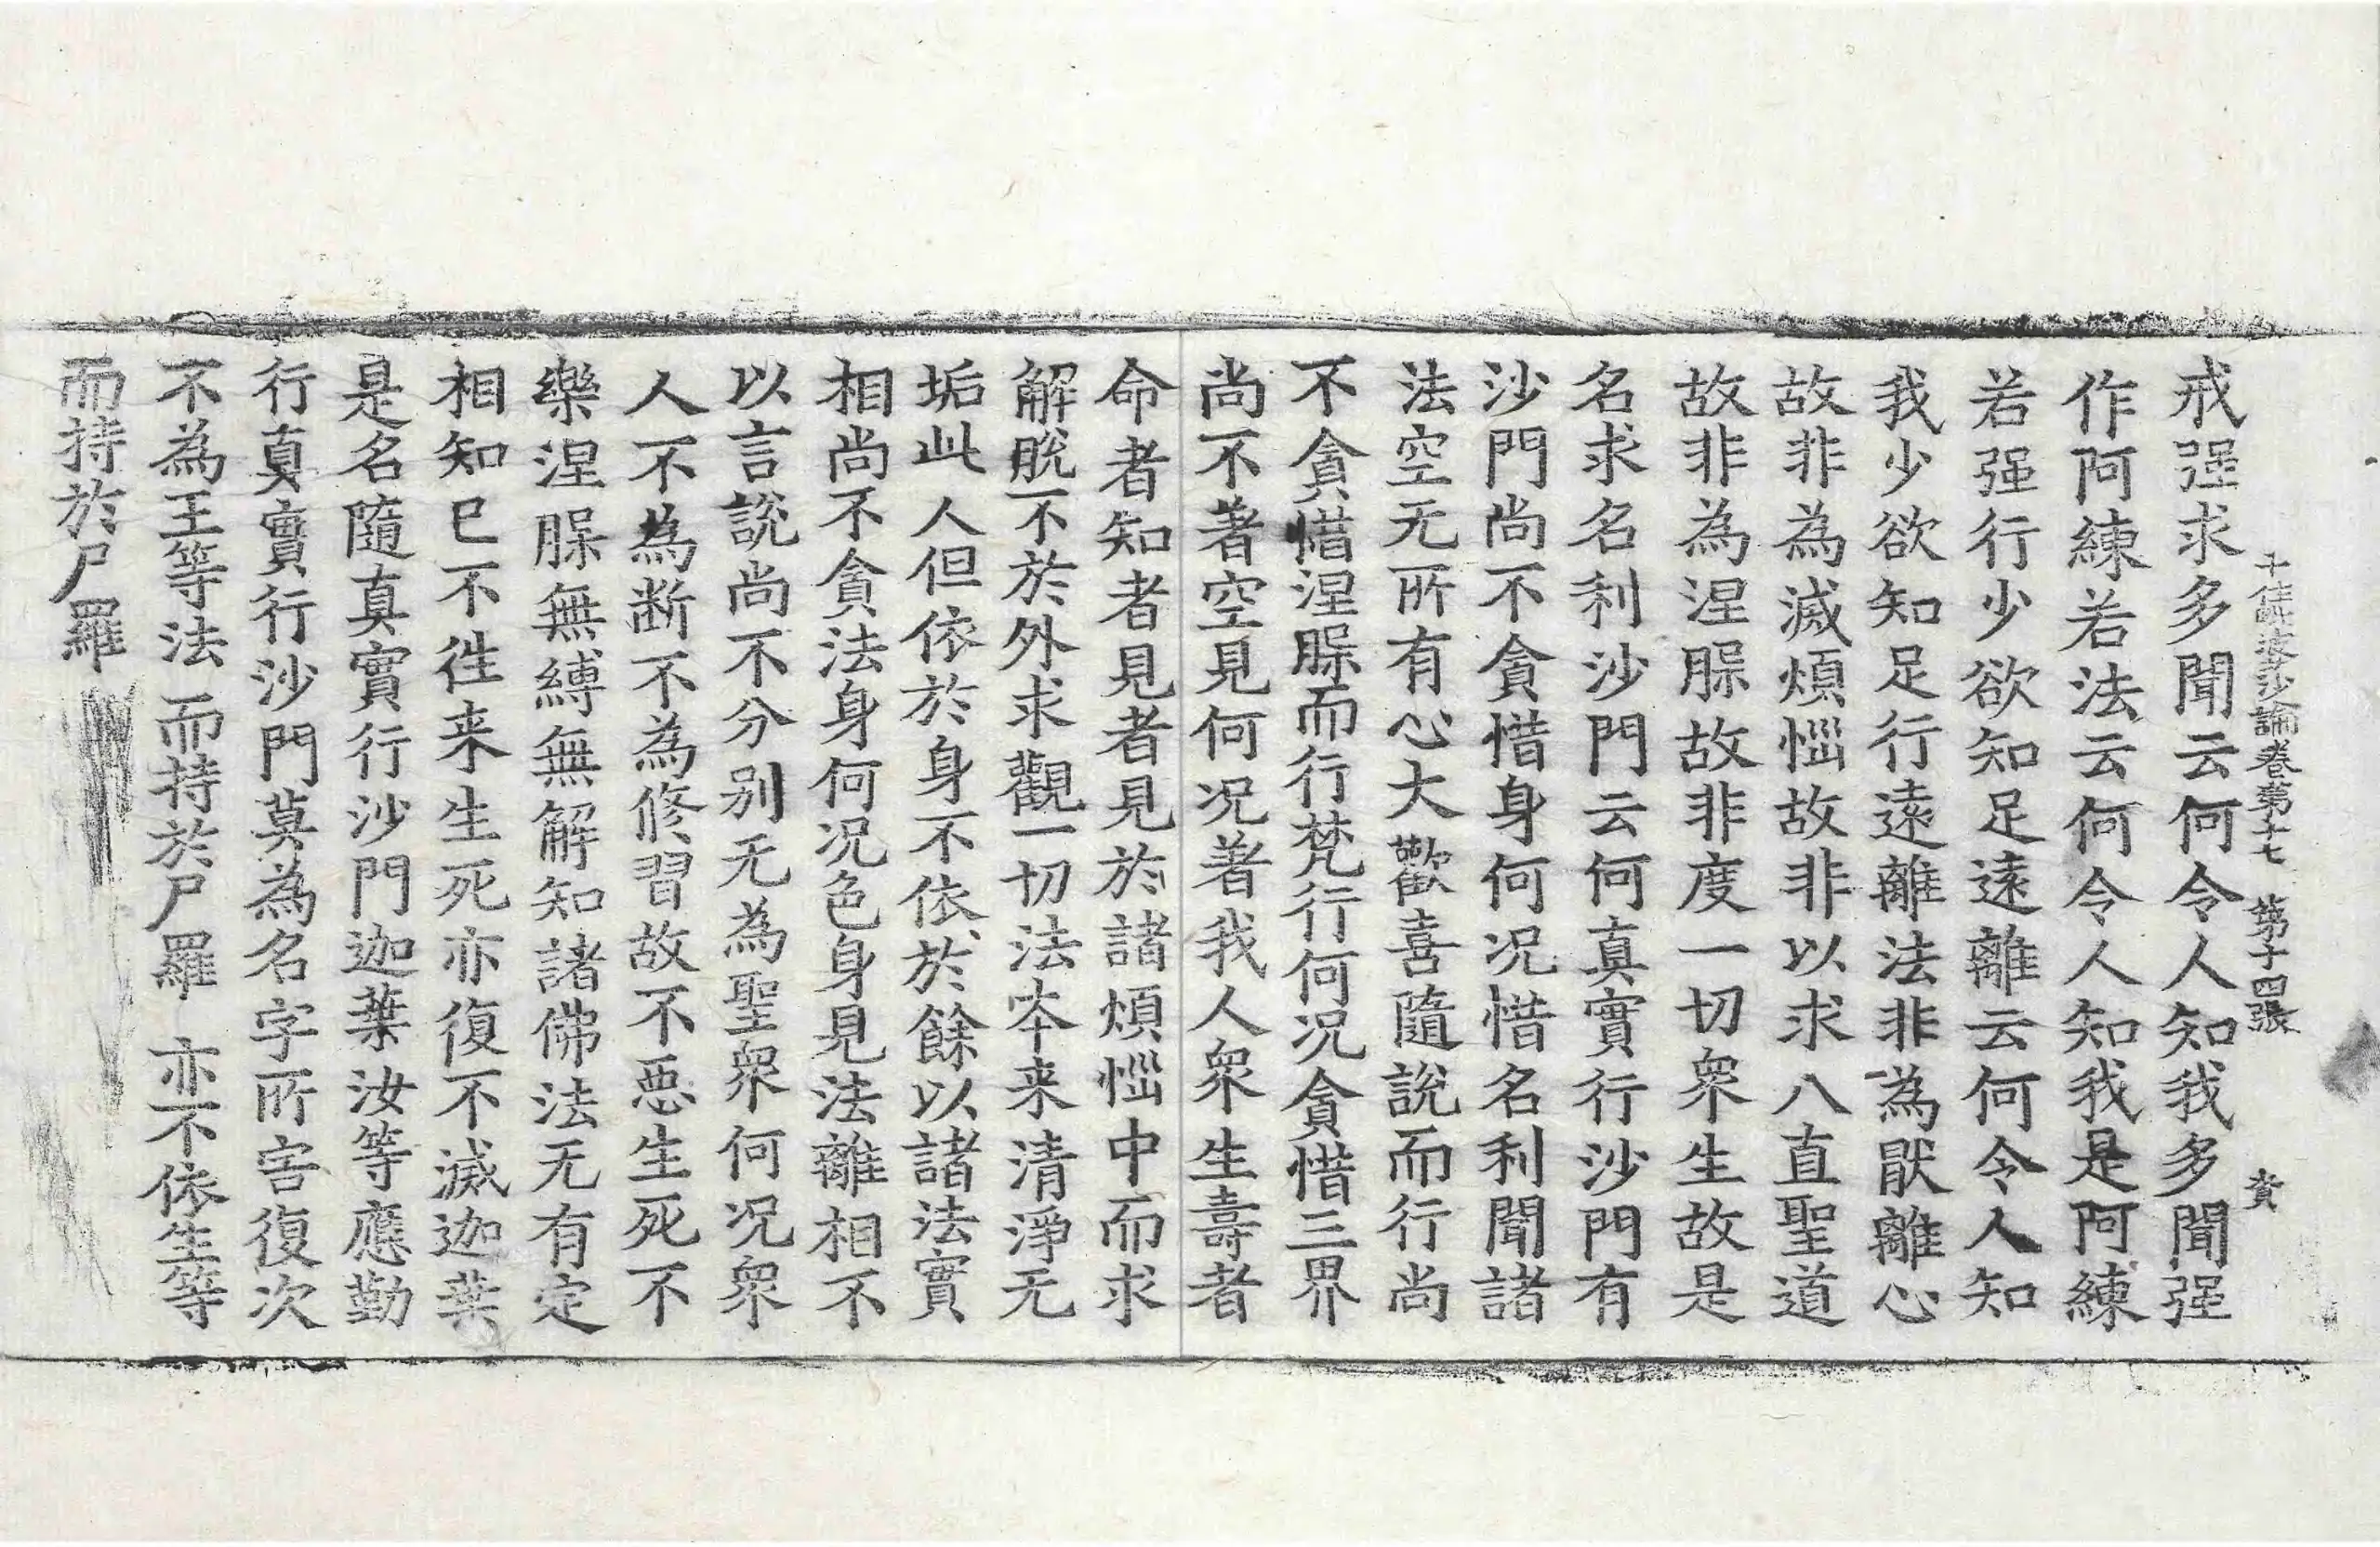 十住毗婆沙論卷第十七 第十四張 賨
戒强求多聞云何令人知我多聞强
作阿練若法云何令人知我是阿練
若强行少欲知足遠離云何令人知
我少欲知足行遠離法非為猒離心
故非為滅煩惱故非以求八直聖道
故非為涅槃故非度一切衆生故是
名求名利沙門云何真實行沙門有
沙門尚不貪惜身何况惜名利聞諸
法空无所有心大歡喜隨說而行尚
不貪惜涅槃而行梵行何况貪惜三界
尚不著空見何况著我人衆生壽者
命者知者見者見於諸煩惱中而求
解脫不於外求觀一切法夲来清淨无
垢此人但依於身不依於餘以諸法實
相尚不貪法身何况色身見法離相不
以言說尚不分别无為聖衆何况衆
人不為断不為修習故不惡生死不
樂涅槃無縛無解知諸佛法无有定
相知已不徃来生死亦復不滅迦葉
是名隨真實行沙門迦葉汝等應勤
行真實行沙門莫為名字所害復次
不為王等法而持於尸羅亦不依生等
而持於尸羅